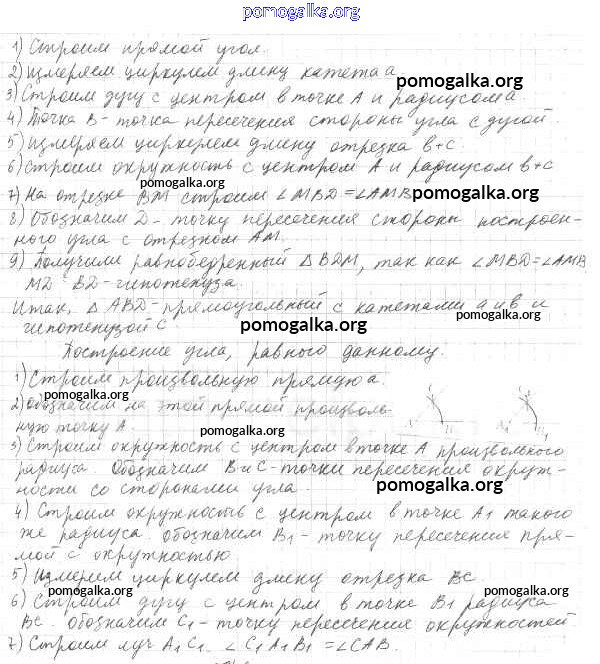 pomogalka.org
1) Строим прямой угол.
2) Измеряем циркулем длину катета a
pomogalka.org
3) Строим дугу с центром в точке A и радиусом a.
4) Точка B - точка пересечения стороны угла с дугой.
5) Измеряем циркулем длину отрезка b+c.
6) Строим окружность с центром A и радиусом b+c
pomogalka.org
7) На отрезке BM строим ∠MBD=∠AMB
pomogalka.org
8) Обозначим D - точку пересечения стороны построен-
ного угла с отрезком AM.
9) Получили равнобедренный △BDM, так как ∠MBD=∠AMB
MD BD-гипотенуза.
Итак, △ABD-прямоугольный с катетами a и b и
pomogalka.org
гипотенузой c.
pomogalka.org
Построение угла, равного данному.
1) Строим произвольную прямую a.
pomogalka.org
2) Обозначим на этой прямой произволь-
ную точку A.
pomogalka.org
3) Строим окружность с центром в точке A произвольного
радиуса. Обозначим B и C-точки пересечения окруж-
ности со сторонами угла.
pomogalka.org
4) Строим окружность с центром в точке A₁ такого
же радиуса. Обозначим B₁ - точку пересечения пря-
мой с окружностью.
5) Измерим циркулем длину отрезка BC.
pomogalka.org
pomogalka.org
6) Строим дугу с центром в точке B₁ радиуса
BC. Обозначим C₁ - точку пересечения окружностей.
7) Строим луч A₁C₁. ∠C₁A₁B₁=∠CAB.